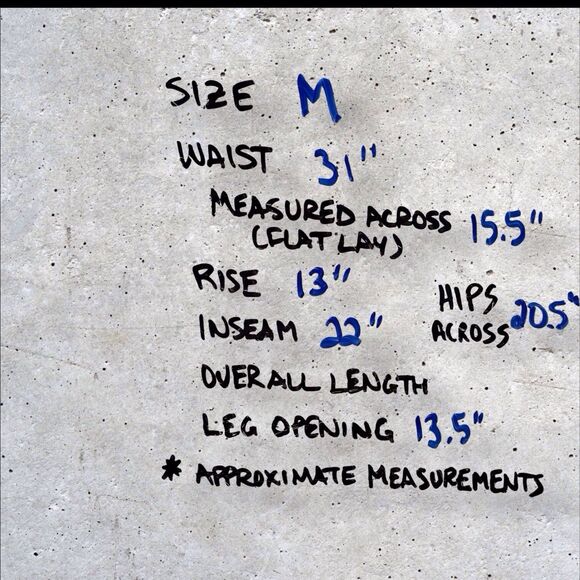 SIZE M
WAIST 31"
MEASURED ACROSS 15.5"
(FLAT LAY)
RISE 13"
HIPS
ACROSS 20.5"
INSEAM 22"
OVERALL LENGTH
LEG OPENING 13.5"
* APPROXIMATE MEASUREMENTS